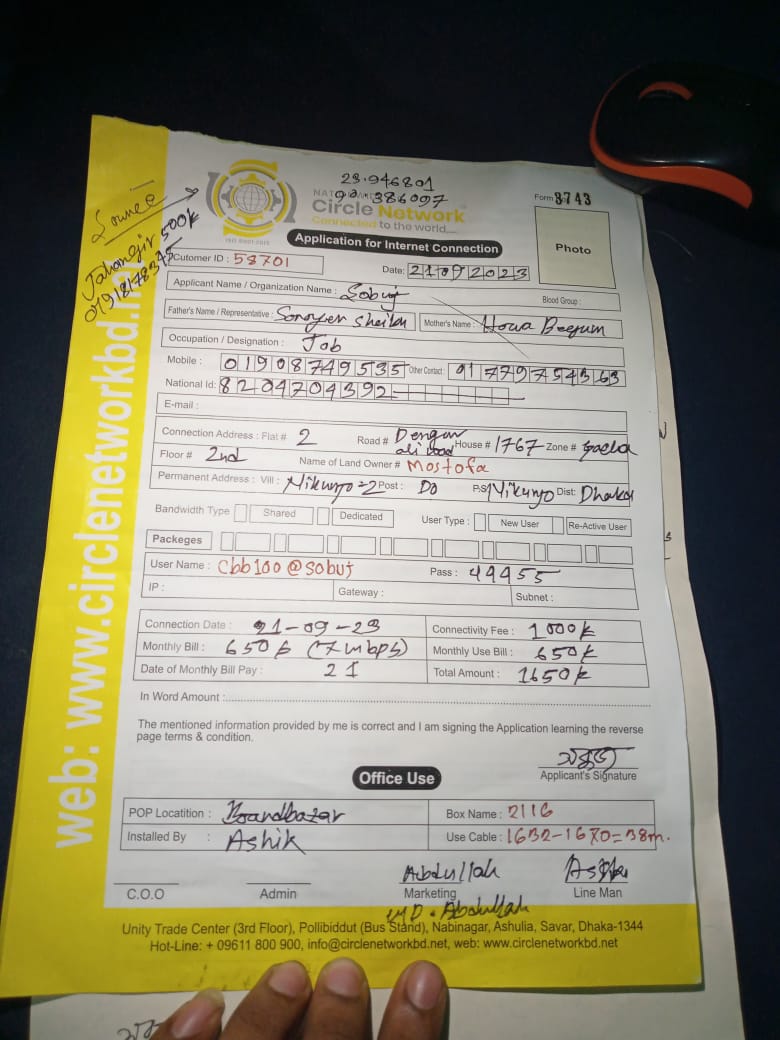 23.946801
90.386097
Circle Network
Connected to the world....
ISO 9001:2015
Form 3743
Photo
Application for Internet Connection
Cutomer ID : 58701
Date: 21 09 2023
Jahangir 500৳
web: www.circlenetworkbd.net
Applicant Name / Organization Name : Sobuj
Blood Group :
Father's Name / Representative : Sheikh
Mother's Name : Howa Beegum
Occupation / Designation : Job
Mobile : 01908749535 Other Contact :
National Id: 8204704392
E-mail :
Connection Address : Flat # 2 Road # Dengur ali road House # 1767 Zone #
Floor # 2nd Name of Land Owner # Mostofa
Permanent Address : Vill : Nikunjo-2 Post : Do P.S Nikunjo Dist: Dhaka
Bandwidth Type Shared Dedicated User Type : New User Re-Active User
Packeges
User Name : Cbb100@sobuj Pass : 49955
IP : Gateway : Subnet :
Connection Date : 21-09-23 Connectivity Fee : 1000৳
Monthly Bill : 650৳ (7mbps) Monthly Use Bill : 650৳
Date of Monthly Bill Pay : 21 Total Amount : 1650৳
In Word Amount :
The mentioned information provided by me is correct and I am signing the Application learning the reverse
page terms & condition.
সবুজ
Applicant's Signature
Office Use
POP Locatition : Boardbazar Box Name : 2116
Installed By : Ashik Use Cable : 1632-1670=38m.
Abdullah
C.O.O Admin Marketing Line Man
MD. Abdullah
Unity Trade Center (3rd Floor), Pollibiddut (Bus Stand), Nabinagar, Ashulia, Savar, Dhaka-1344
Hot-Line: + 09611 800 900, info@circlenetworkbd.net, web: www.circlenetworkbd.net